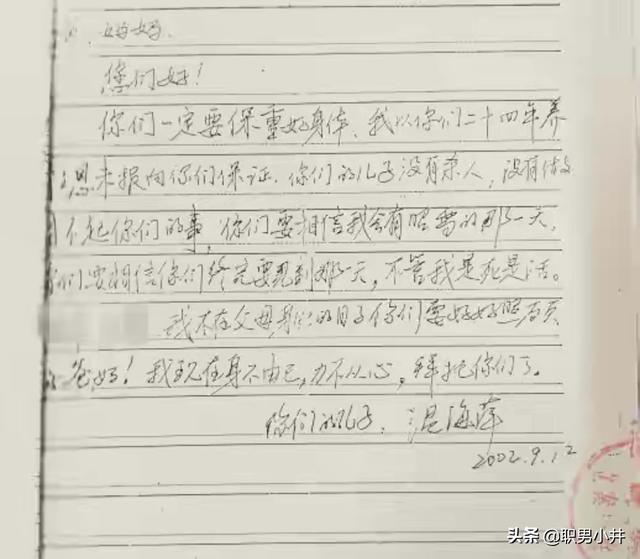 妈妈.
您们好!
你们一定要保重好身体、我以你们二十四年养
之恩未报向你们保证.你们的儿子没有杀人,没有做
不起你们的事,你们要相信我会有昭雪的那一天,
们要相信你们终究要见到那一天,不管我是死是活。
我不在父母身边的日子你们要好好照顾
爸妈!我现在身不由己,力不从心,拜托你们了。
你们的儿子.温海萍
2002.9.12
头条@职男小井